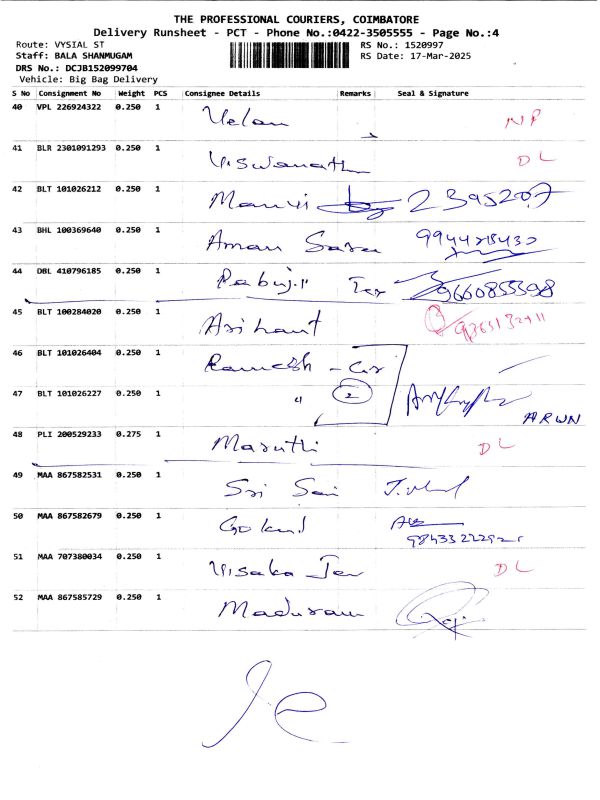 THE PROFESSIONAL COURIERS, COIMBATORE
Delivery Runsheet - PCT - Phone No.:0422-3505555 - Page No.:4
Route: VYSIAL ST
RS No.: 1520997
Staff: BALA SHANMUGAM
RS Date: 17-Mar-2025
DRS No.: DCJB152099704
Vehicle: Big Bag Delivery
S No Consignment No Weight PCS Consignee Details Remarks Seal & Signature
40 VPL 226924322 0.250 1 Velan NP
41 BLR 2301091293 0.250 1 Viswanath DL
42 BLT 101026212 0.250 1
43 BHL 100369640 0.250 1 Aman
44 DBL 410796185 0.250 1
45 BLT 100284020 0.250 1 Arihant
46 BLT 101026404 0.250 1 Ramesh
47 BLT 101026227 0.250 1 " 2
ARUN
48 PLI 200529233 0.275 1 Maruthi DL
49 MAA 867582531 0.250 1 Sri Sai
50 MAA 867582679 0.250 1 Gokul
51 MAA 707380034 0.250 1 Visaka DL
52 MAA 867585729 0.250 1 Maduram